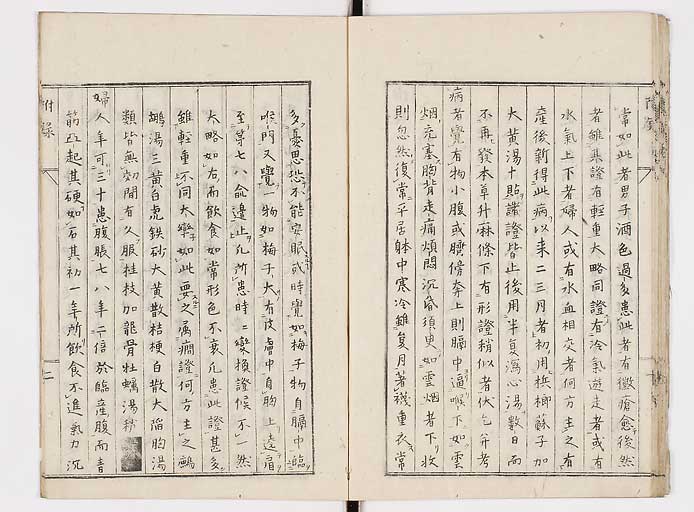 常如此者男子酒色過多患此者有黴瘡愈後然
者雖其證有輕重大略同證有冷氣遊走者或有
水氣上下者婦人或有水血相交者何方主之有
產後新得此病以來二三月者初用檳榔蘇子加
大黄湯十貼諸證皆止後用半夏瀉心湯數日而
不再發本草升麻條下有形證稍似者伏乞并考
病者覺有物小腹或臍傍奔上則膈中逼喉下如雲
烟充塞胸背走痛煩悶沉昏須臾如雲烟者下收
則忽然復常平居躰中寒冷雖夏月著襪重衣常
多憂思恐不能安眠或時覺如梅子物自膈中臨
喉門又覺一物如梅子大有皮膚中自胸上遶肩
至第七八俞邊止凡所患時二變換證候不一然
大略如右而飲食如常形色不衰凡患此證甚多
雖輕重不同大槩如此要之属癇證何方主之鷓
鴣湯三黄白虎鉄砂大黄散桔梗白散大陷胸湯
類皆無効間有久服桂枝加龍骨牡蠣湯
婦人年可三十患腹脹七八年一倍於臨產腹而青
筋互起其硬如石其初一年所飲食不進氣力沉
附錄